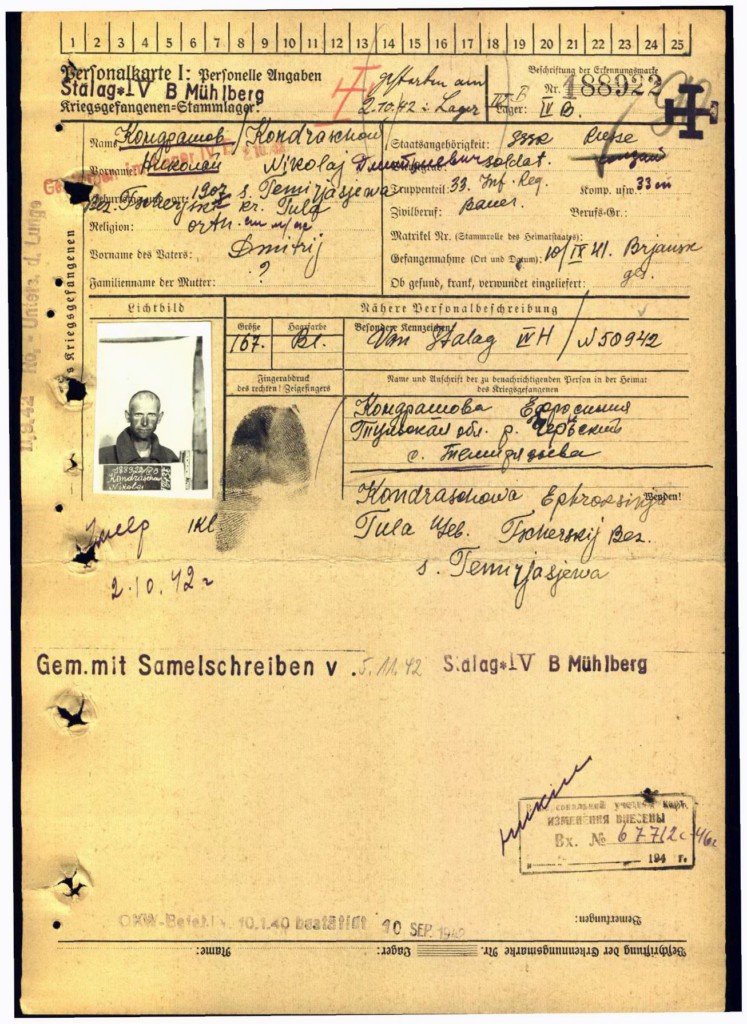 1 2 3 4 5 6 7 8 9 10 11 12 13 14 15 16 17 18 19 20 21 22 23 24 25
Personalkarte I: Personelle Angaben
Stalag*IV B Mühlberg
Kriegsgefangenen=Stammlager:
gestorben am
2.10.42 i. Lager
Beschriftung der Erkennungsmarke
Nr. 188922
Lager: IV B.
des Kriegsgefangenen
Name: Кондрашов / Kondraschow
Vorname: Николай Nikolaj Дмитриевич
1907 s. Temirjasjewa
kr. Tula
Religion: orth.
Vorname des Vaters: Dmitrij
Familienname der Mutter: ?
Staatsangehörigkeit: Russe
soldat.
Truppenteil: 33. Inf. Reg. Komp. usw.: 33
Zivilberuf: Bauer. Berufs-Gr.:
Matrikel Nr. (Stammrolle des Heimatstaates):
Gefangennahme (Ort und Datum): 10/IX 41. Brjansk
Ob gesund, krank, verwundet eingeliefert: ges.
Lichtbild
Nähere Personalbeschreibung
Größe Haarfarbe Besondere Kennzeichen:
167. Bl. Von Stalag IV H / N 50942
Fingerabdruck
des rechten! Zeigefingers
Name und Anschrift der zu benachrichtigenden Person in der Heimat
des Kriegsgefangenen
Кондрашова Ефросиния
Тульская обл. р. Черьский
с. Темирязьева
188922
Kondraschow
Nikolai
Kondraschowa Ephrossinja
Wenden!
Tula Geb. Tscherskij Bez.
s. Temirjasjewa
Умер IKl
2.10.42 г
Gem.mit Samelschreiben v. 5.11.42 Stalag*IV B Mühlberg
ИЗМЕНЕНИЯ ВНЕСЕНЫ
Вх. № 67712с-46г
194 г.
OKW-Befehl v. 10.1.40 bestätigt 10 SEP. 1942
Bemerkungen:
Beschriftung der Erkennungsmarke Nr. Lager: Name: